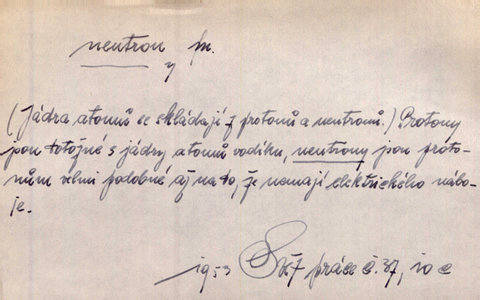 neutron m.
y
(Jádra atomů se skládají z protonů a neutronů.) Protony
jsou totožné s jádry atomů vodíku, neutrony jsou proto-
nům velmi podobné až na to, že nemají elektrického nábo-
je.
1953 práce č. 37, 10